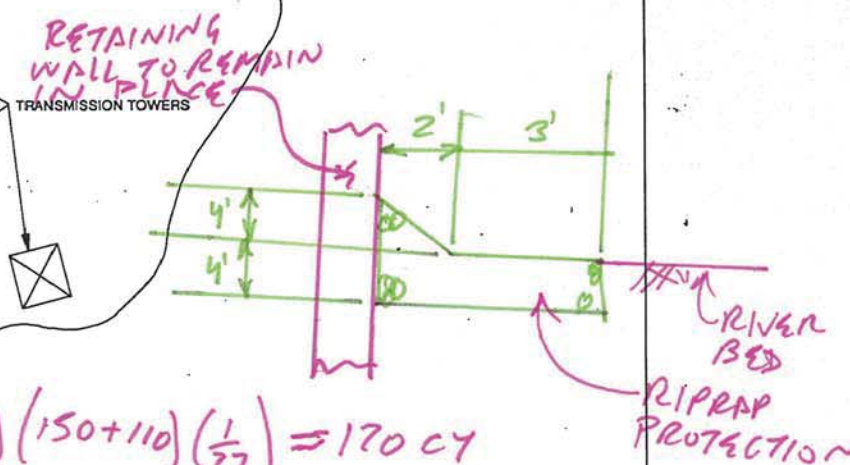 RETAINING
WALL TO REMAIN
IN PLACE
TRANSMISSION TOWERS
2'
3'
4'
4'
RIVER
BED
RIPRAP
PROTECTION
)(150+110)(1/27) = 170 CY